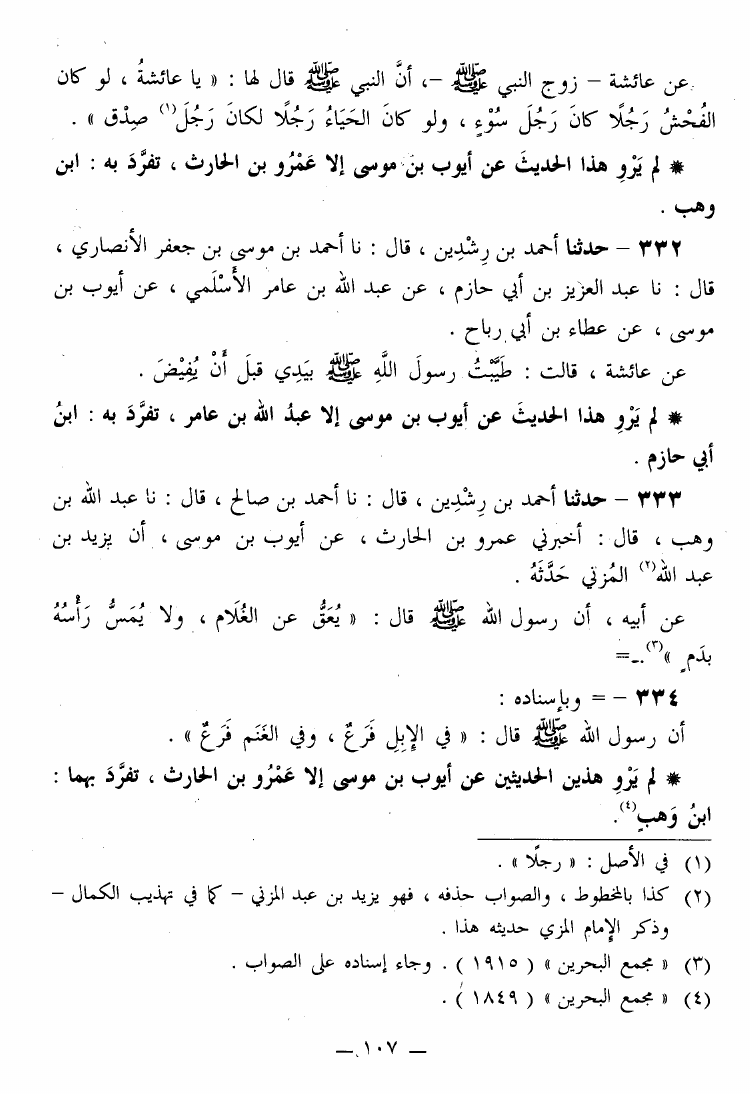 عن عائشة – زوج النبي ﷺ –، أنَّ النبي ﷺ قال لها : « يا عائشةُ ، لو كان
الفُحْشُ رَجُلًا كانَ رَجُلَ سُوْءٍ ، ولو كانَ الحَيَاءُ رَجُلًا لكانَ رَجُلَ(١) صِدْق » .
* لم يَرْوِ هذا الحديثَ عن أيوب بن موسى إلا عَمْرُو بن الحارث ، تفرَّدَ به : ابن
وهب .
٣٣٢ – حدثنا أحمد بن رِشْدِين ، قال : نا أحمد بن موسى بن جعفر الأنصاري ،
قال : نا عبد العزيز بن أبي حازم ، عن عبد الله بن عامر الأَسْلَمي ، عن أيوب بن
موسى ، عن عطاء بن أبي رباح .
عن عائشة ، قالت : طَيَّبْتُ رسولَ اللَّهِ ﷺ بيَدِي قبلَ أَنْ يُفِيْضَ .
* لم يَرْوِ هذا الحديثَ عن أيوب بن موسى إلا عبدُ الله بن عامر ، تفرَّدَ به : ابنُ
أبي حازم .
٣٣٣ – حدثنا أحمد بن رِشْدِين ، قال : نا أحمد بن صالح ، قال : نا عبد الله بن
وهب ، قال : أخبرني عمرو بن الحارث ، عن أيوب بن موسى ، أن يزيد بن
عبد الله(٢) المُزني حَدَّثَهُ .
عن أبيه ، أن رسول الله ﷺ قال : « يُعَقُّ عن الغُلَام ، ولا يُمَسُّ رَأْسُهُ
بدَمٍ »(٣).ـ=
٣٣٤ – = وبإسناده :
أن رسول الله ﷺ قال : « في الإِبلِ فَرَعٌ ، وفي الغَنَم فَرَعٌ » .
* لم يَرْوِ هذين الحديثين عن أيوب بن موسى إلا عَمْرُو بن الحارث ، تفرَّدَ بهما :
ابنُ وَهبٍ(٤).
(١) في الأصل : « رجلًا » .
(٢) كذا بالمخطوط ، والصواب حذفه ، فهو يزيد بن عبد المزني – كما في تهذيب الكمال –
وذكر الإمام المزي حديثه هذا .
(٣) « مجمع البحرين » ( ١٩١٥ ) . وجاء إسناده على الصواب .
(٤) « مجمع البحرين » ( ١٨٤٩ ) .
– ١٠٧ –